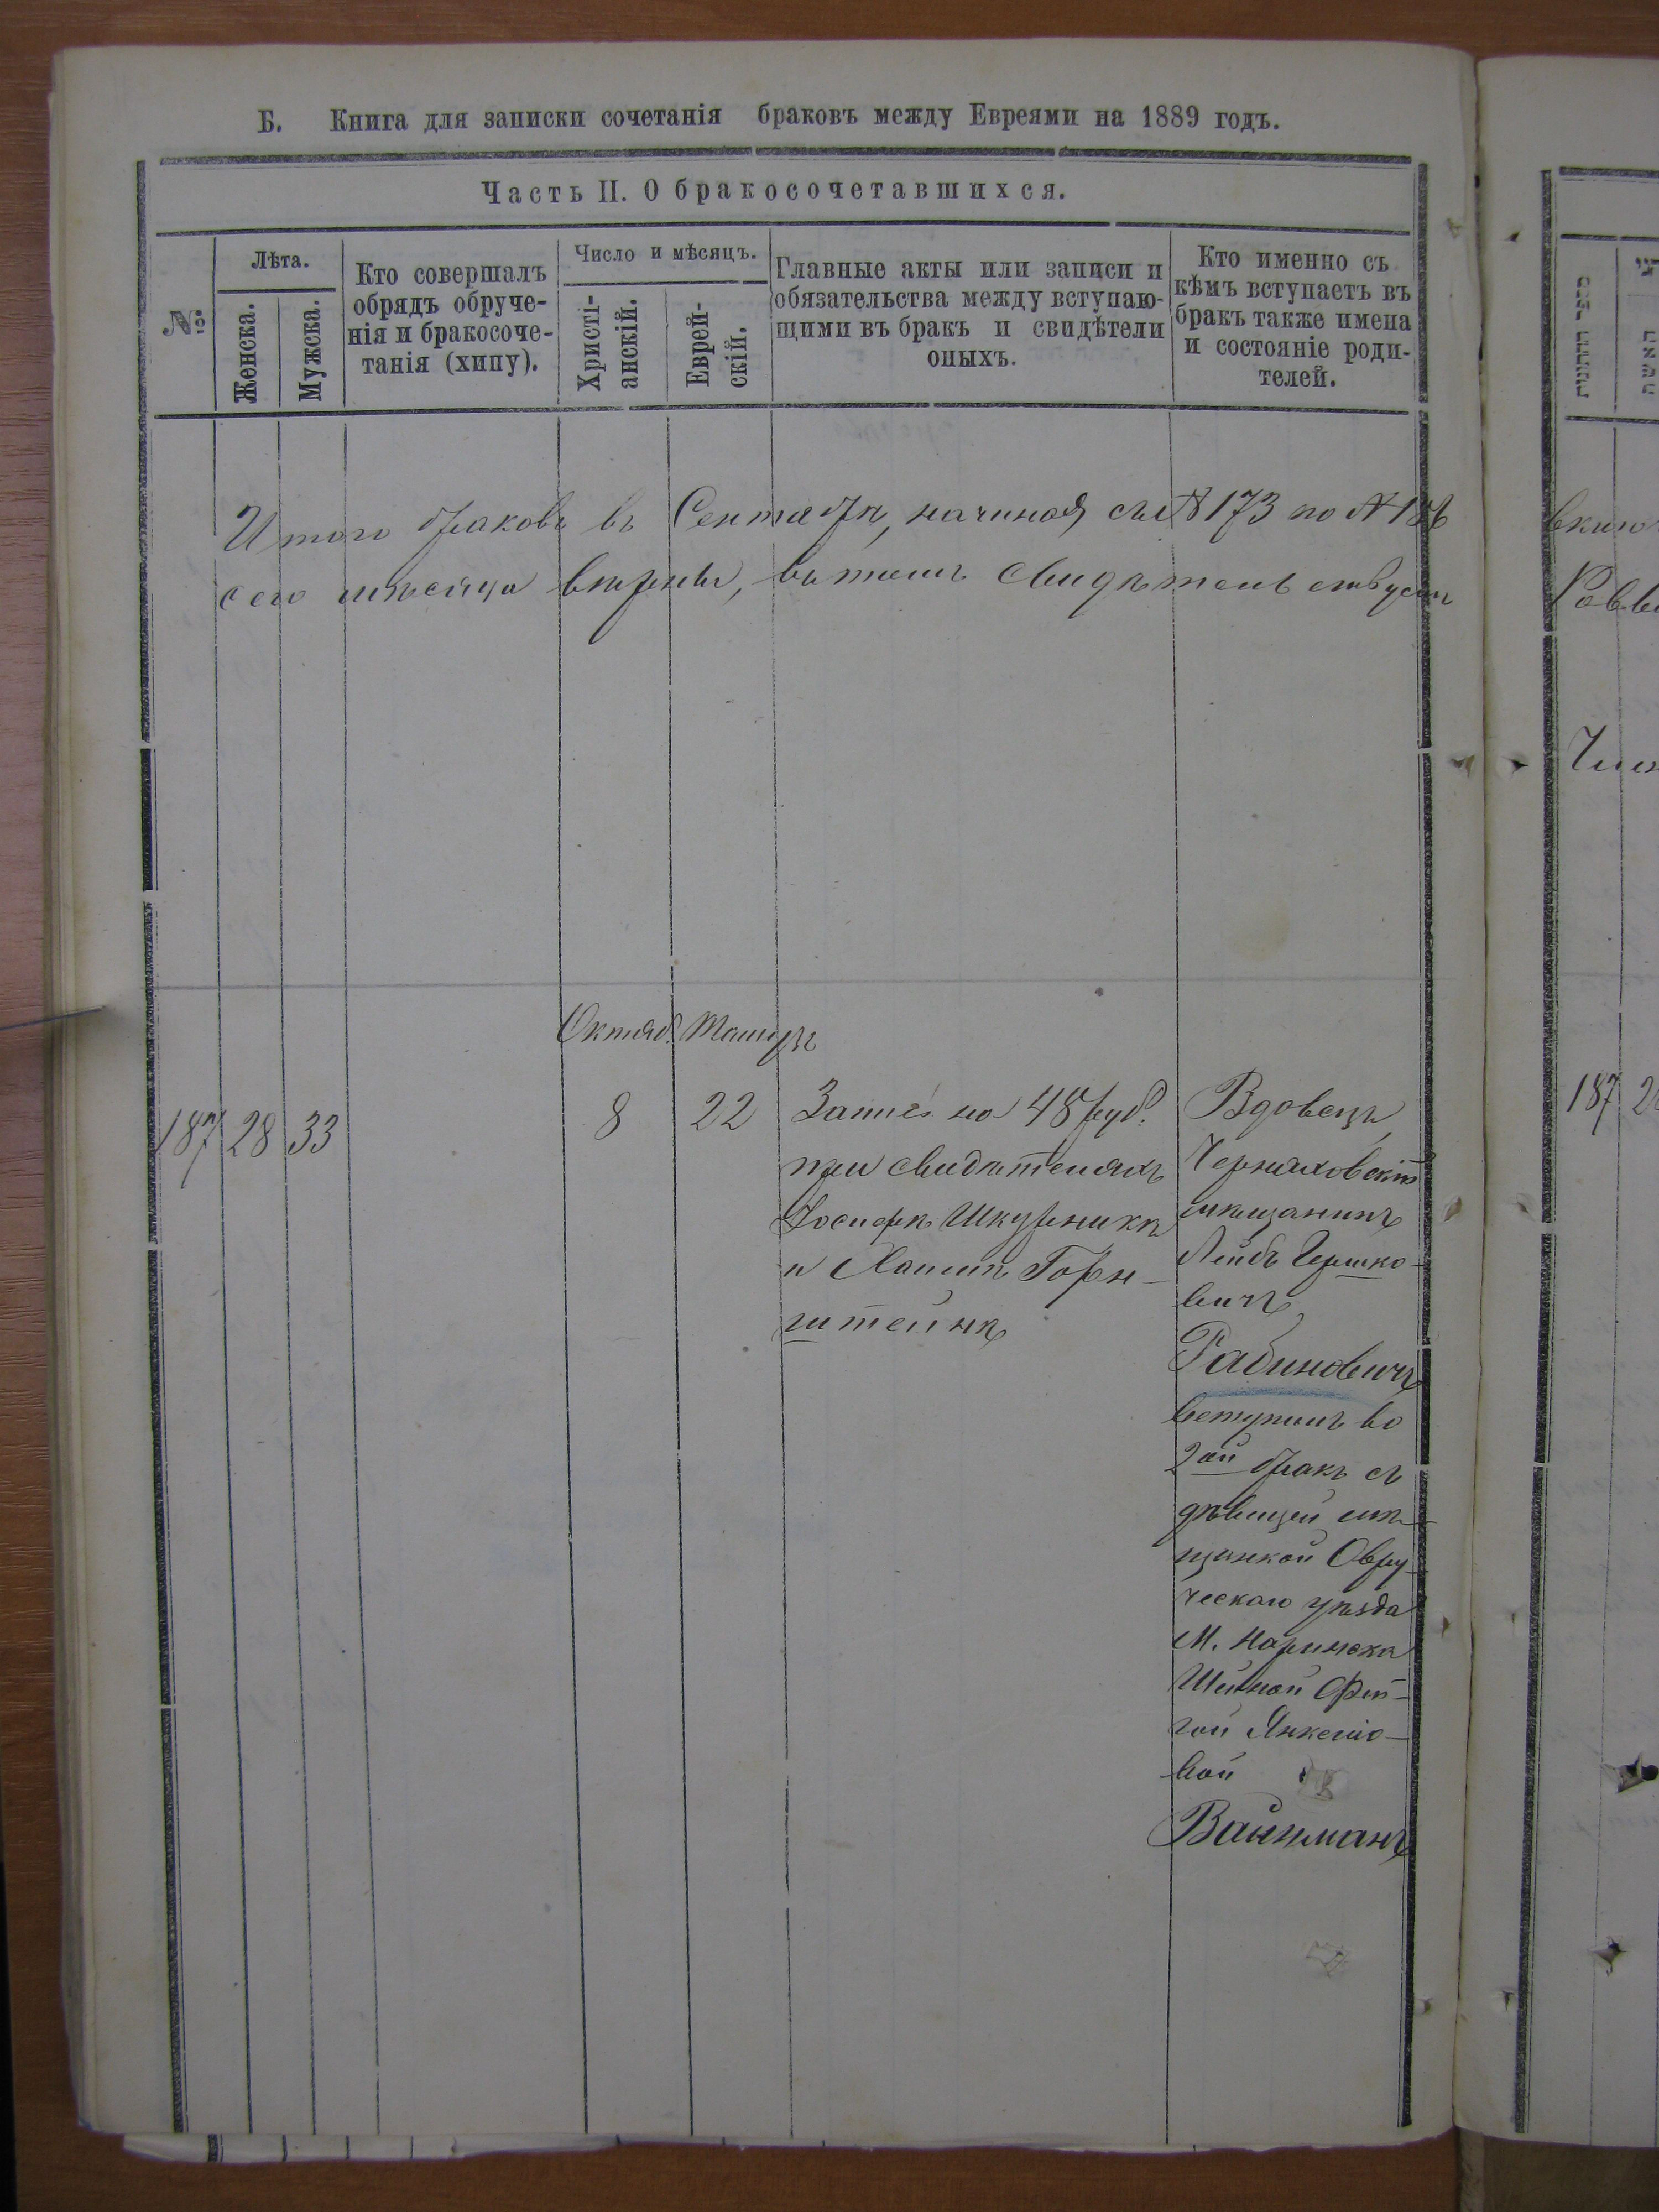 Б. Книга для записки сочетанія браковъ между Евреями на 1889 годъ.
Часть II. О бракосочетавшихся.
№
Лѣта.
Женска.
Мужска.
Кто совершалъ
обрядъ обруче-
нія и бракосоче-
танія (хипу).
Число и мѣсяцъ.
Христі-
анскій.
Еврей-
скій.
Главные акты или записи и
обязательства между вступаю-
щими въ бракъ и свидѣтели
оныхъ.
Кто именно съ
кѣмъ вступаетъ въ
бракъ также имена
и состояніе роди-
телей.
Итого браковъ въ Сентябрѣ, начиная съ № 173 по № 186
сего мѣсяца вѣрны, въ томъ свидѣтельствуемъ
Октяб.
8
22
187 28 33
Запись на 48 руб.
при свидѣтеляхъ
Іосифѣ Шкурникѣ
и Хаимѣ Горн-
штейнѣ
Вдовецъ
Черняховскій
мѣщанинъ
Лейбъ Гершко-
вичъ
Рабиновичъ
вступилъ во
2ой бракъ съ
дѣвицей мѣ-
щанкой Овру-
ческаго уѣзда
М. Наринска
Шейной Фей-
гой Янкелю-
вой
Вайнманъ
האשה
Ровве
187 2